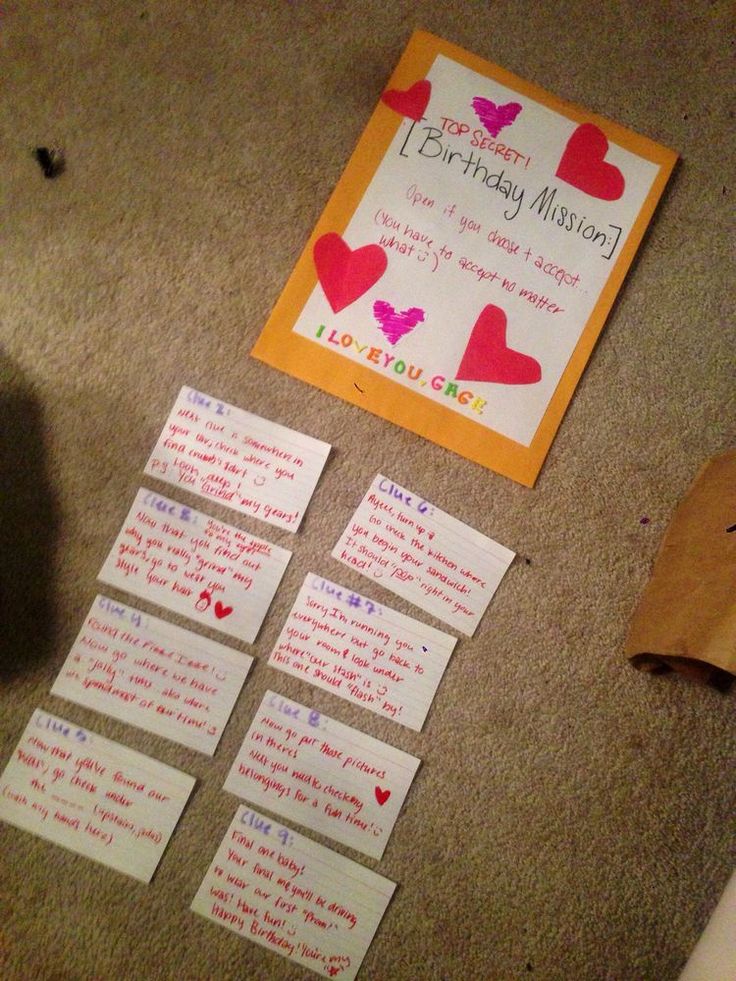 TOP SECRET!
[Birthday Mission:]
Open if you choose t accept...
(You have to accept no matter
what :))
I LOVE YOU, GAGE
Clue 2:
Next clue is somewhere in
your car, check where you
find crumbs & dirt :)
p.s.
You "Grind" my gears!
you're the apple
to my eye
Now that you find out
why you really "grind" my
gears, go to where you
style your hair
Clue 4:
Found the
Now go where we have
a "jolly" time.. aka where
we spend most of our time! :)
Clue 5:
Now that you've found our
go check under
the ---- (upstairs, )
(wash any hands here)
Clue 6:
Ayee, turn up
Go check the kitchen where
you begin your sandwich!
It should "pop" right in your
head! :)
Clue #7:
Sorry I'm running you
everywhere but go back to
your room & look under
where "our stash" is :)
this one should "flash" by!
Clue 8:
Now go put those pictures
in there!
Next you need to check my
belongings for a fun time! :)
Clue 9:
Final one baby!
Your final one, you'll be driving
to where our first "Prom?"
was! Have fun! :)
Happy Birthday! You're my